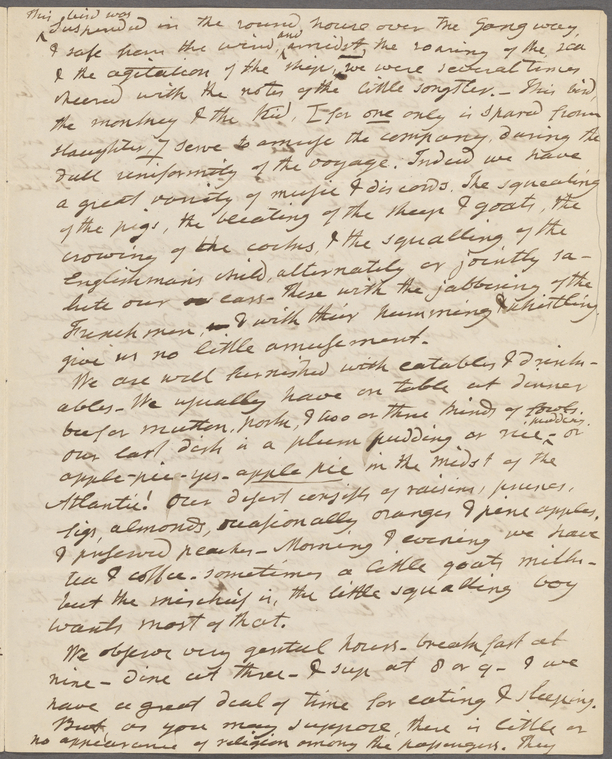 This bird was
suspended in the round house over the gangway,
& safe from the wind, and amidst the roaring of the sea
& the agitation of the ship, we were several times
cheered with the notes of the little songster. - This bird,
the monkey & the kid, I for one only is spared from
slaughter, & serve to amuse the company, during the
dull uniformity of the voyage. Indeed we have
a great variety of music & discords. The squealing
of the pigs, the bleating of the sheep & goats, the
crowing of the cocks, & the squalling of the
Englishman's child, alternately or jointly sa-
lute our ears - These with the jabbering of the
Frenchmen & with their humming & whistling
give us no little amusement.
We are well furnished with eatables & drink-
ables - We usually have on table at dinner
beef or mutton, pork, & two or three kinds of fowls.
our last dish is a plum pudding or rice pudding - or
apple-pie - yes - apple pie in the midst of the
Atlantic! Our desert consists of raisins, prunes,
figs, almonds, occasionally oranges & pine apples,
& preserved peaches - Morning & evening we have
tea & coffee - sometimes a little goats milk -
but the mischief is, the little squalling boy
wants most of that.
We observe very genteel hours - breakfast at
nine - dine at three - & sup at 8 or 9 - & we
have a great deal of time for eating & sleeping.
But, as you may suppose, there is little or
no appearance of religion among the passengers. They